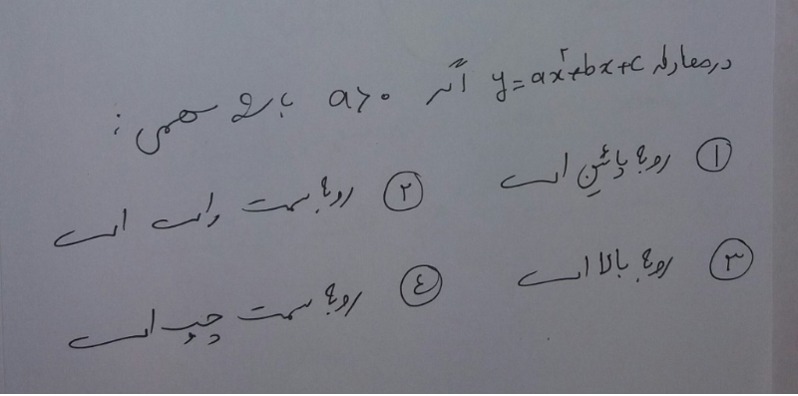 در معادله y=ax²+bx+c اگر a>۰ باشد سهمی:
① رو به پائین است ② رو به سمت راست است
③ رو به بالا است ④ رو به سمت چپ است